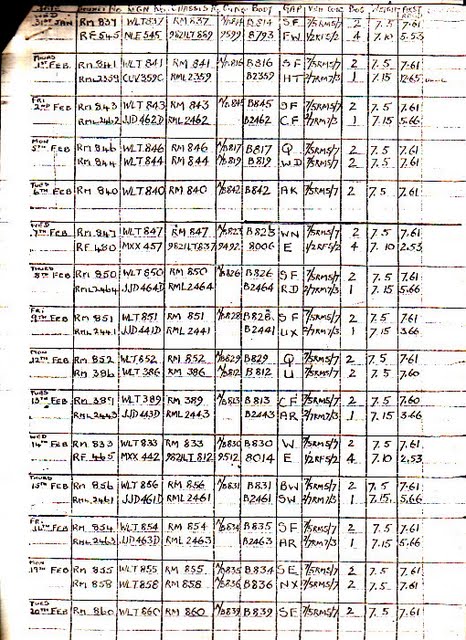 31ST JAN RM 837 WLT837 RM 837 B814 SF 7/5RM5/7 2 7.5 7.61
RF 545 NLE 545 9599 B793 FW 4 7.10 5.53
1ST FEB RM 841 WLT 841 RM 841 B816 SF 7/5RM5/7 2 7.5 7.61
RML2359 CUV359C RML2359 B2359 HT 2/7RM7/3 1 7.15
FRI
2ND FEB RM 843 WLT 843 RM 843 B845 SF 7/5RM5/7 2 7.5 7.61
RML2462 JJD 462D RML 2462 B2462 CF 2/7RM7/3 1 7.15 5.66
MON
5TH FEB RM 846 WLT 846 RM 846 N/D817 B817 Q 7/5RM5/7 2 7.5 7.61
RM 844 WLT 844 RM 844 N/D819 B819 WD 7/5RM5/7 2 7.5 7.61
TUES
6TH FEB RM 840 WLT 840 RM 840 N/D842 B842 AK 7/5RM5/7 2 7.5 7.61
WED
7TH FEB RM 847 WLT 847 RM 847 N/D823 B823 WN 7/5RM5/7 2 7.5 7.61
RF 480 MXX 457 9821LT837 9492 8006 E 1/2RF5/2 4 7.10 2.53
THURS
8TH FEB RM 850 WLT 850 RM 850 N/D826 B826 SF 7/5RM5/7 2 7.5 7.61
RML2464 JJD464D RML 2464 B2464 RD 2/7RM7/3 1 7.15 5.66
FRI
9TH FEB RM 851 WLT 851 RM 851 N/D828 B828 SF 7/5RM5/7 2 7.5 7.61
RML2441 JJD441D RML 2441 B2441 UX 2/7RM7/3 1 7.15 3.66
MON
12TH FEB RM 852 WLT 852 RM 852 N/D829 B829 Q 7/5RM5/7 2 7.5 7.61
RM 386 WLT 386 RM 386 N/D812 B812 U 7/5RM5/7 2 7.5 7.60
TUES
13TH FEB RM 389 WLT 389 RM 389 N/D813 B 813 CF 7/5RM5/7 2 7.5 7.60
RML2443 JJD443D RML 2443 B2443 AR 2/7RM7/3 1 7.15 3.66
WED
14TH FEB RM 833 WLT 833 RM 833 N/D830 B830 W 7/5RM5/7 2 7.5 7.61
RF 465 MXX 442 9821LT 812 9512 8014 E 1/2RF5/2 4 7.10 2.53
THURS
15TH FEB RM 856 WLT 856 RM 856 N/D831 B831 BW 7/5RM5/7 2 7.5 7.61
RML2461 JJD461D RML 2461 B2461 SW 2/7RM7/3 1 7.15 5.66
FRI
16TH FEB RM 854 WLT 854 RM 854 N/D834 B835 SF 7/5RM5/7 2 7.5 7.61
RML2463 JJD463D RML 2463 B2463 AR 2/7RM7/3 1 7.15 5.66
MON
19TH FEB RM 855 WLT 855 RM 855 N/D835 B834 SE 7/5RM5/7 2 7.5 7.61
RM 858 WLT 858 RM 858 N/D836 B836 NX 7/5RM5/7 2 7.5 7.61
TUES
20TH FEB RM 860 WLT 860 RM 860 N/D839 B839 SF 7/5RM5/7 2 7.5 7.61